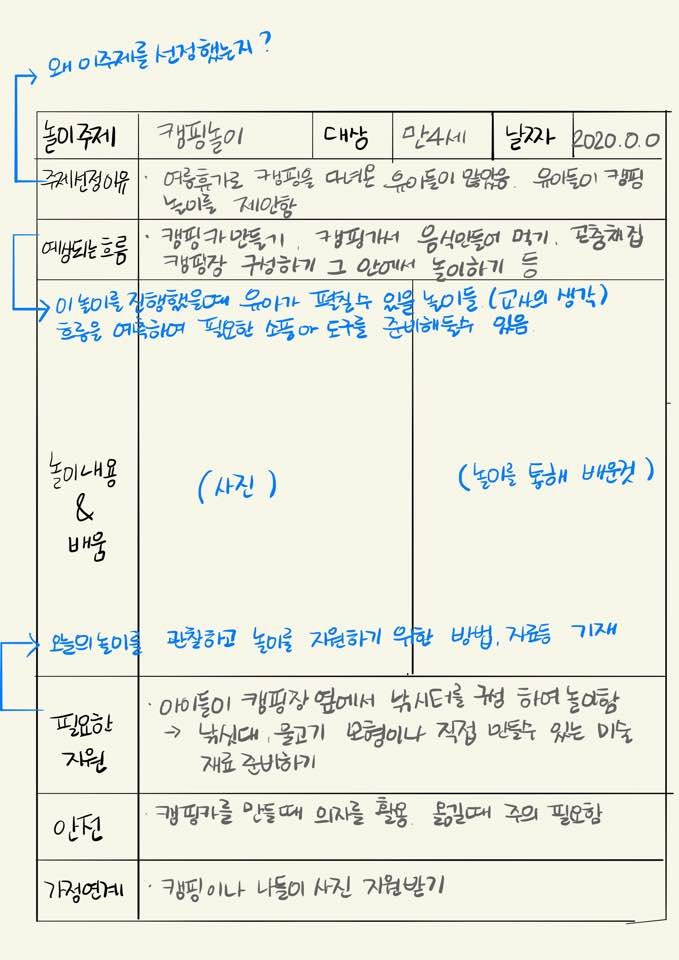 왜 이주제를 선정했는지?
놀이주제 캠핑놀이 대상 만4세 날짜 2020.0.0
주제선정이유 · 여름휴가로 캠핑을 다녀온 유아들이 많았음. 유아들이 캠핑
놀이를 제안함
예상되는흐름 · 캠핑카만들기, 캠핑가서 음식만들어 먹기, 곤충채집
캠핑장 구성하기 그 안에서 놀이하기 등
이 놀이를 진행했을때 유아가 펼칠수 있을 놀이들. (교사의 생각)
흐름을 예측하여 필요한 소품이나 도구를 준비해둘수 있음.
놀이내용
&
배움
(사진)
(놀이를 통해 배운것)
오늘의놀이를 관찰하고 놀이를 지원하기 위한 방법, 자료등 기재
필요한
지원
· 아이들이 캠핑장옆에서 낚시터를 구성 하여놀이함
→ 낚싯대, 물고기 모형이나 직접 만들수 있는 미술
재료 준비하기
안전 · 캠핑카를 만들때 의자를 활용. 옮길때 주의 필요함
가정연계 · 캠핑이나 나들이 사진 지원받기